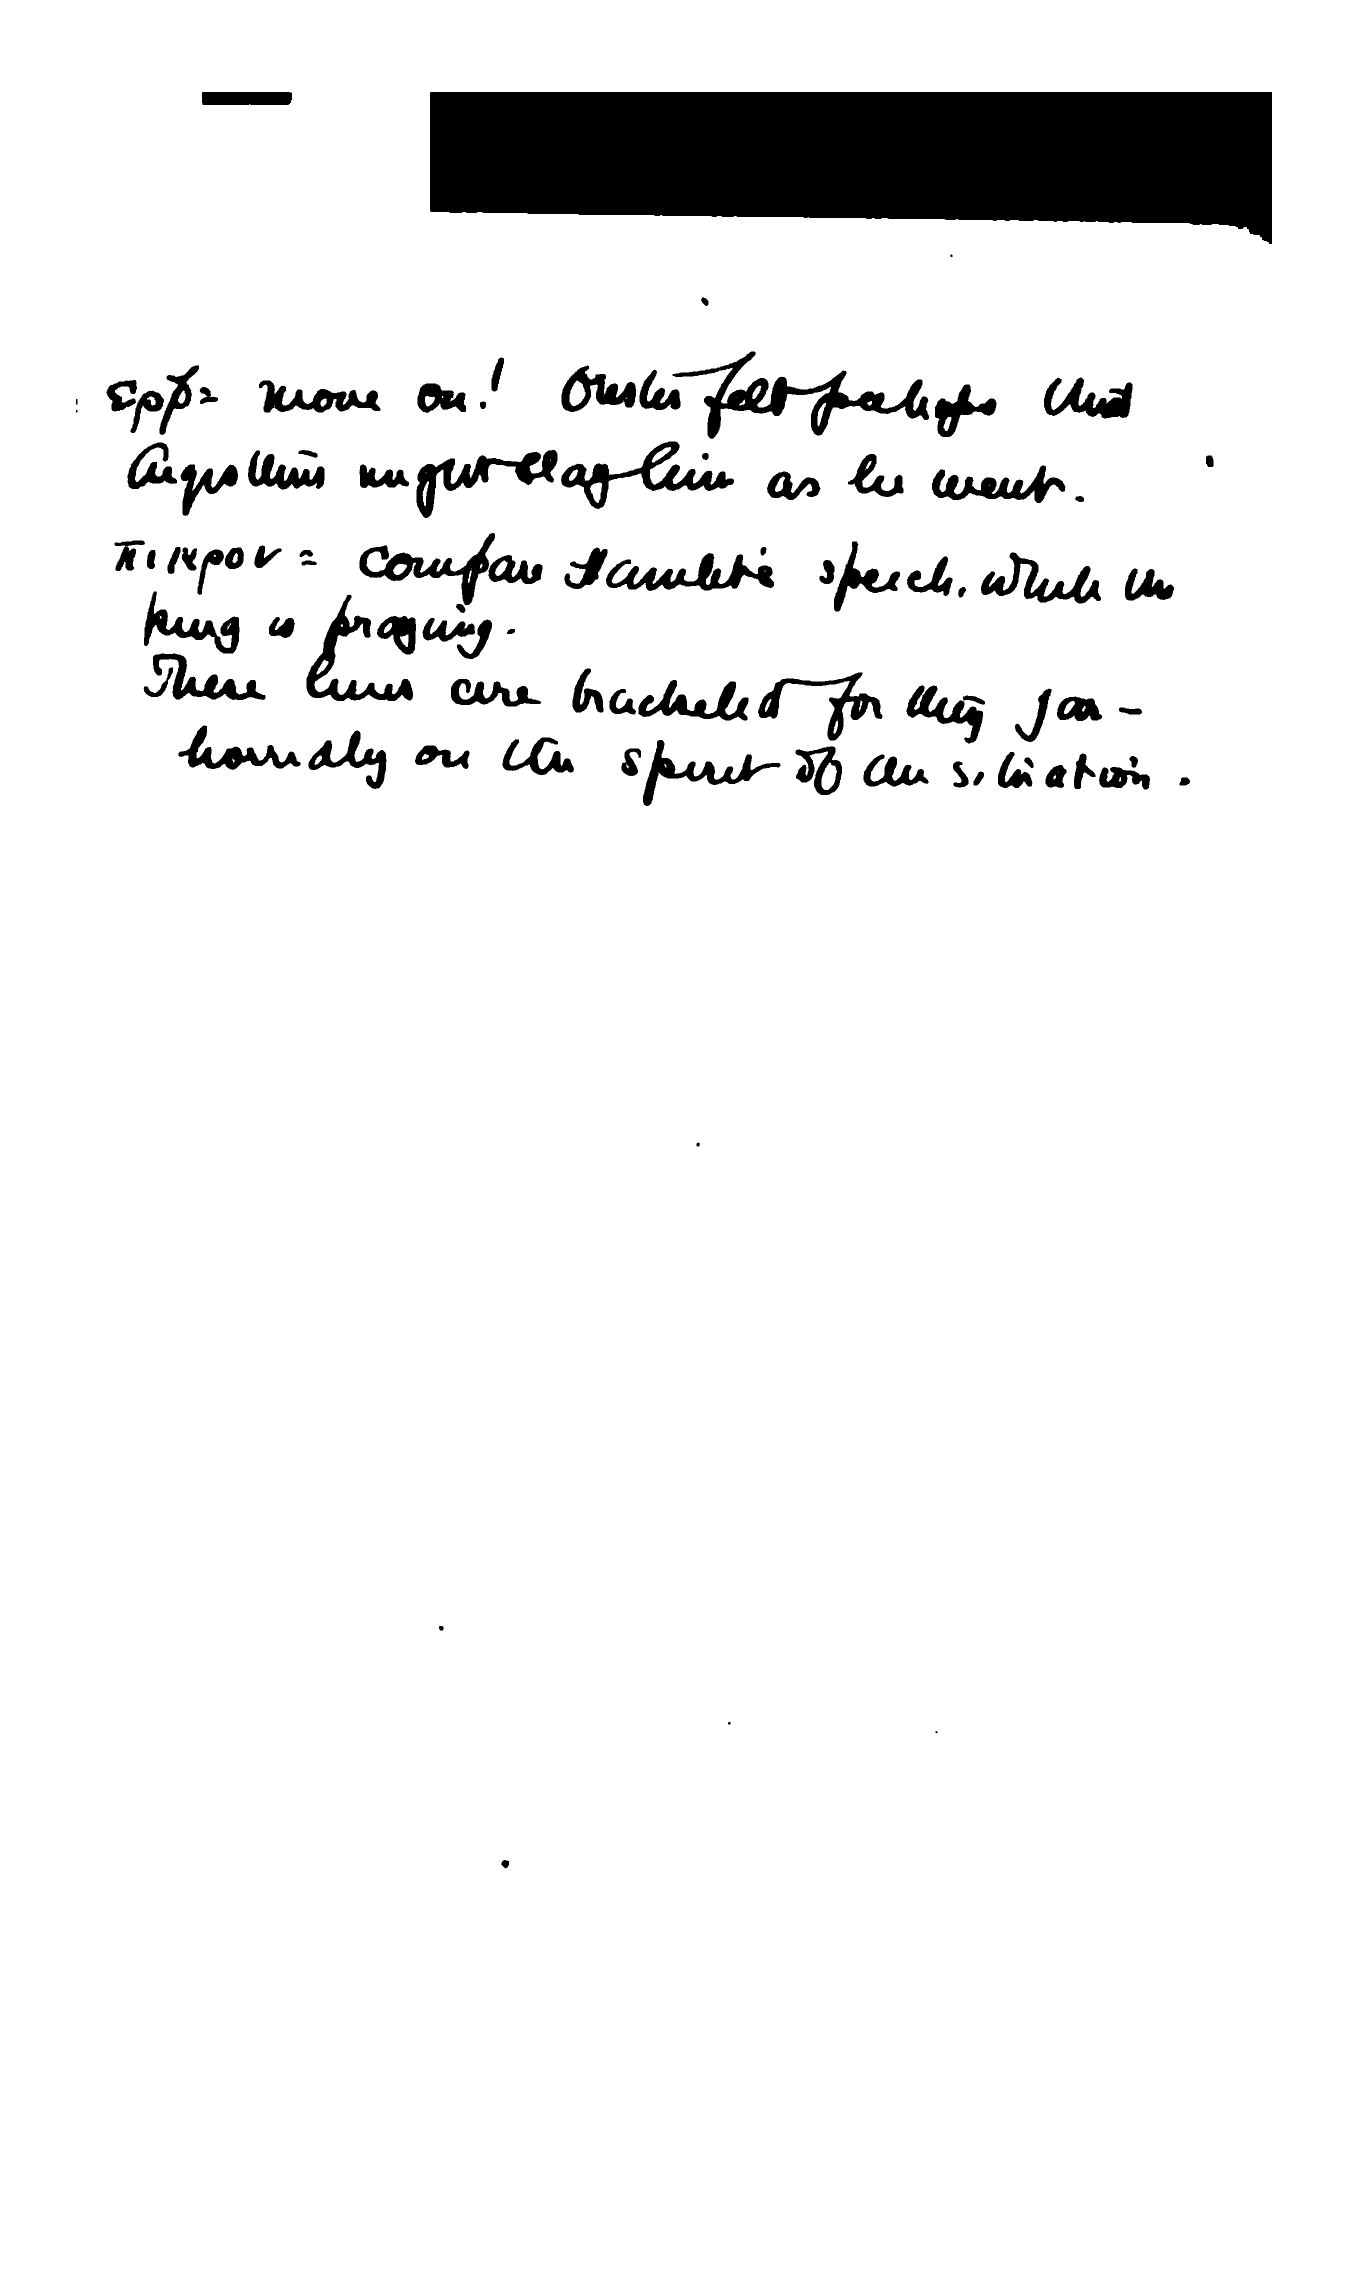 Ερρ = move on! Orestes felt perhaps that
Aegisthus might slay him as he went.
πικρον = Compare Hamlet's speech, while the
king is praying.
These lines are bracketed for they jar –
horridly on the spirit of the situation.